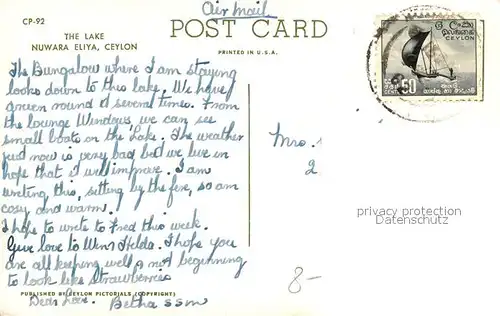 CP-92
THE LAKE
NUWARA ELIYA, CEYLON
Air Mail
POST CARD
PRINTED IN U.S.A.
The Bungalow where I am staying
looks down to this lake. We have
driven round it several times. From
the lounge Windows we can see
small boats on the Lake. The weather
just now is very bad but we live in
hope that it will improve. I am
writing this, sitting by the fire, so am
cosy and warm.
I hope to write to Fred this week.
Give love to Win & Helda. I hope you
are all keeping well & not beginning
to look like Strawberries
Dear Love. Betha
PUBLISHED BY CEYLON PICTORIALS (COPYRIGHT)
Mrs.
2
CEYLON
50
privacy protection
Datenschutz
8-